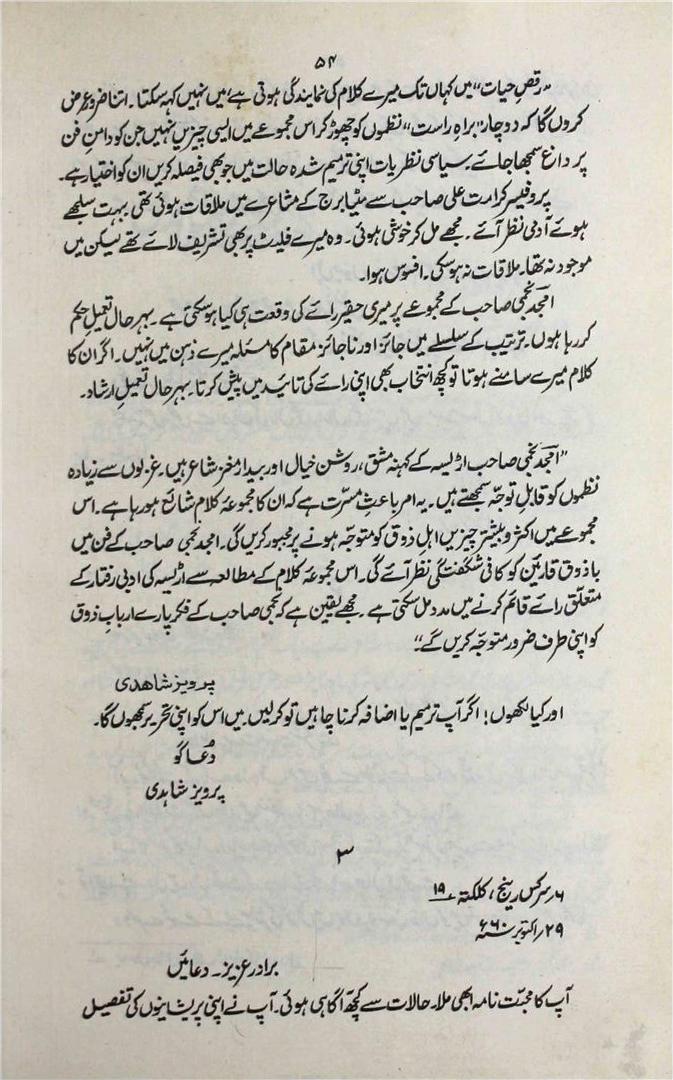 ۵۴
”رقصِ حیات“ میں کہاں تک میرے کلام کی نمایندگی ہوتی ہے، میں نہیں کہہ سکتا۔ اتنا ضرور عرض
کروں گا کہ دو چار ”براہِ راست“ نظموں کو چھوڑ کر اس مجموعے میں ایسی چیزیں نہیں جن کو دامنِ فن
پر داغ سمجھا جائے۔ سیاسی نظریات اپنی ترمیم شدہ حالت میں جو بھی فیصلہ کریں ان کو اختیار ہے۔
پروفیسر کرامت علی صاحب سے مٹیا برج کے مشاعرے میں ملاقات ہوئی تھی بہت سلجھے
ہوئے آدمی نظر آئے۔ مجھے مل کر خوشی ہوئی۔ وہ میرے فلیٹ پر بھی تشریف لائے تھے لیکن میں
موجود نہ تھا۔ ملاقات نہ ہو سکی۔ افسوس ہوا۔
امجد نجمی صاحب کے مجموعے پر میری حقیر رائے کی وقعت ہی کیا ہو سکتی ہے۔ بہرحال تعمیلِ حکم
کر رہا ہوں۔ ترتیب کے سلسلے میں جائز اور ناجائز مقام کا مسئلہ میرے ذہن میں نہیں۔ اگر ان کا
کلام میرے سامنے ہوتا تو کچھ انتخاب بھی اپنی رائے کی تائید میں پیش کرتا۔ بہرحال تعمیلِ ارشاد۔
”امجد نجمی صاحب اڑیسہ کے کہنہ مشق، روشن خیال اور بیدار مغز شاعر ہیں۔ غزلوں سے زیادہ
نظموں کو قابلِ توجّہ سمجھتے ہیں۔ یہ امر باعثِ مسرّت ہے کہ ان کا مجموعۂ کلام شائع ہو رہا ہے۔ اس
مجموعے میں اکثر و بیشتر چیزیں اہلِ ذوق کو متوجّہ ہونے پر مجبور کریں گی۔ امجد نجمی صاحب کے فن میں
باذوق قارئین کو کافی شگفتگی نظر آئے گی۔ اس مجموعۂ کلام کے مطالعہ سے اڑیسہ کی ادبی رفتار کے
متعلّق رائے قائم کرنے میں مدد مل سکتی ہے۔ مجھے یقین ہے کہ نجمی صاحب کے فکر پارے اربابِ ذوق
کو اپنی طرف ضرور متوجّہ کریں گے۔“
پرویز شاہدی
اور کیا لکھوں؛ اگر آپ ترمیم یا اضافہ کرنا چاہیں تو کر لیں۔ میں اس کو اپنی تحریر سمجھوں گا۔
دُعا گو
پرویز شاہدی
۳
۶؍ سرکس رینج، کلکتہ ۱۹
۲۹؍ اکتوبر سنہ ۶۶۰
برادرِ عزیز۔ دعائیں
آپ کا محبّت نامہ ابھی ملا۔ حالات سے کچھ آگاہی ہوئی۔ آپ نے اپنی پریشانیوں کی تفصیل